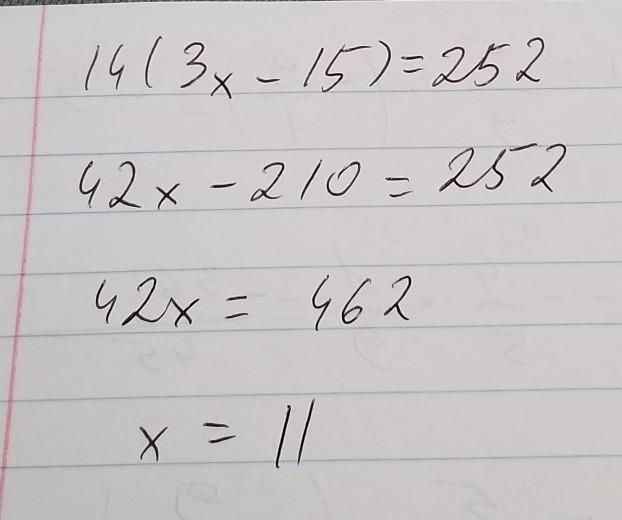 14(3x - 15) = 252
42x - 210 = 252
42x = 462
x = 11